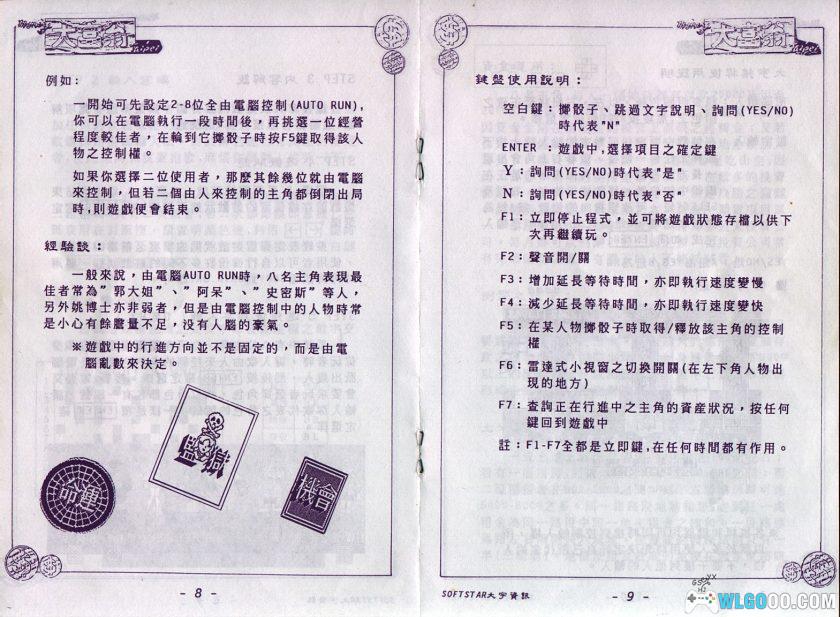 大富翁
Taipei
例如：
一開始可先設定2-8位全由電腦控制(AUTO RUN),
你可以在電腦執行一段時間後，再挑選一位經營
程度較佳者，在輪到它擲骰子時按F5鍵取得該人
物之控制權。
如果你選擇二位使用者，那麼其餘幾位就由電腦
來控制，但若二個由人來控制的主角都倒閉出局
時,則遊戲便會結束。
經驗談：
一般來說，由電腦AUTO RUN時，八名主角表現最
佳者常為”郭大姐”、”阿呆”、”史密斯”等人，
另外姚博士亦非弱者，但是由電腦控制中的人物時常
是小心有餘膽量不足，没有人腦的豪氣。
※遊戲中的行進方向並不是固定的，而是由電
腦亂數來決定。
監獄
命運
機會
- 8 -
大富翁
Taipei
鍵盤使用說明：
空白鍵：擲骰子、跳過文字說明、詢問(YES/NO)
時代表"N"
ENTER ：遊戲中,選擇項目之確定鍵
Y：詢問(YES/NO)時代表"是"
N：詢問(YES/NO)時代表"否"
F1：立即停止程式，並可將遊戲狀態存檔以供下
次再繼續玩。
F2：聲音開/關
F3：增加延長等待時間，亦即執行速度變慢
F4：減少延長等待時間，亦即執行速度變快
F5：在某人物擲骰子時取得/釋放該主角的控制
權
F6：雷達式小視窗之切換開關(在左下角人物出
現的地方)
F7：查詢正在行進中之主角的資產狀況，按任何
鍵回到遊戲中
註：F1-F7全都是立即鍵,在任何時間都有作用。
SOFTSTAR大宇資訊
- 9 -
WLGOOO.COM